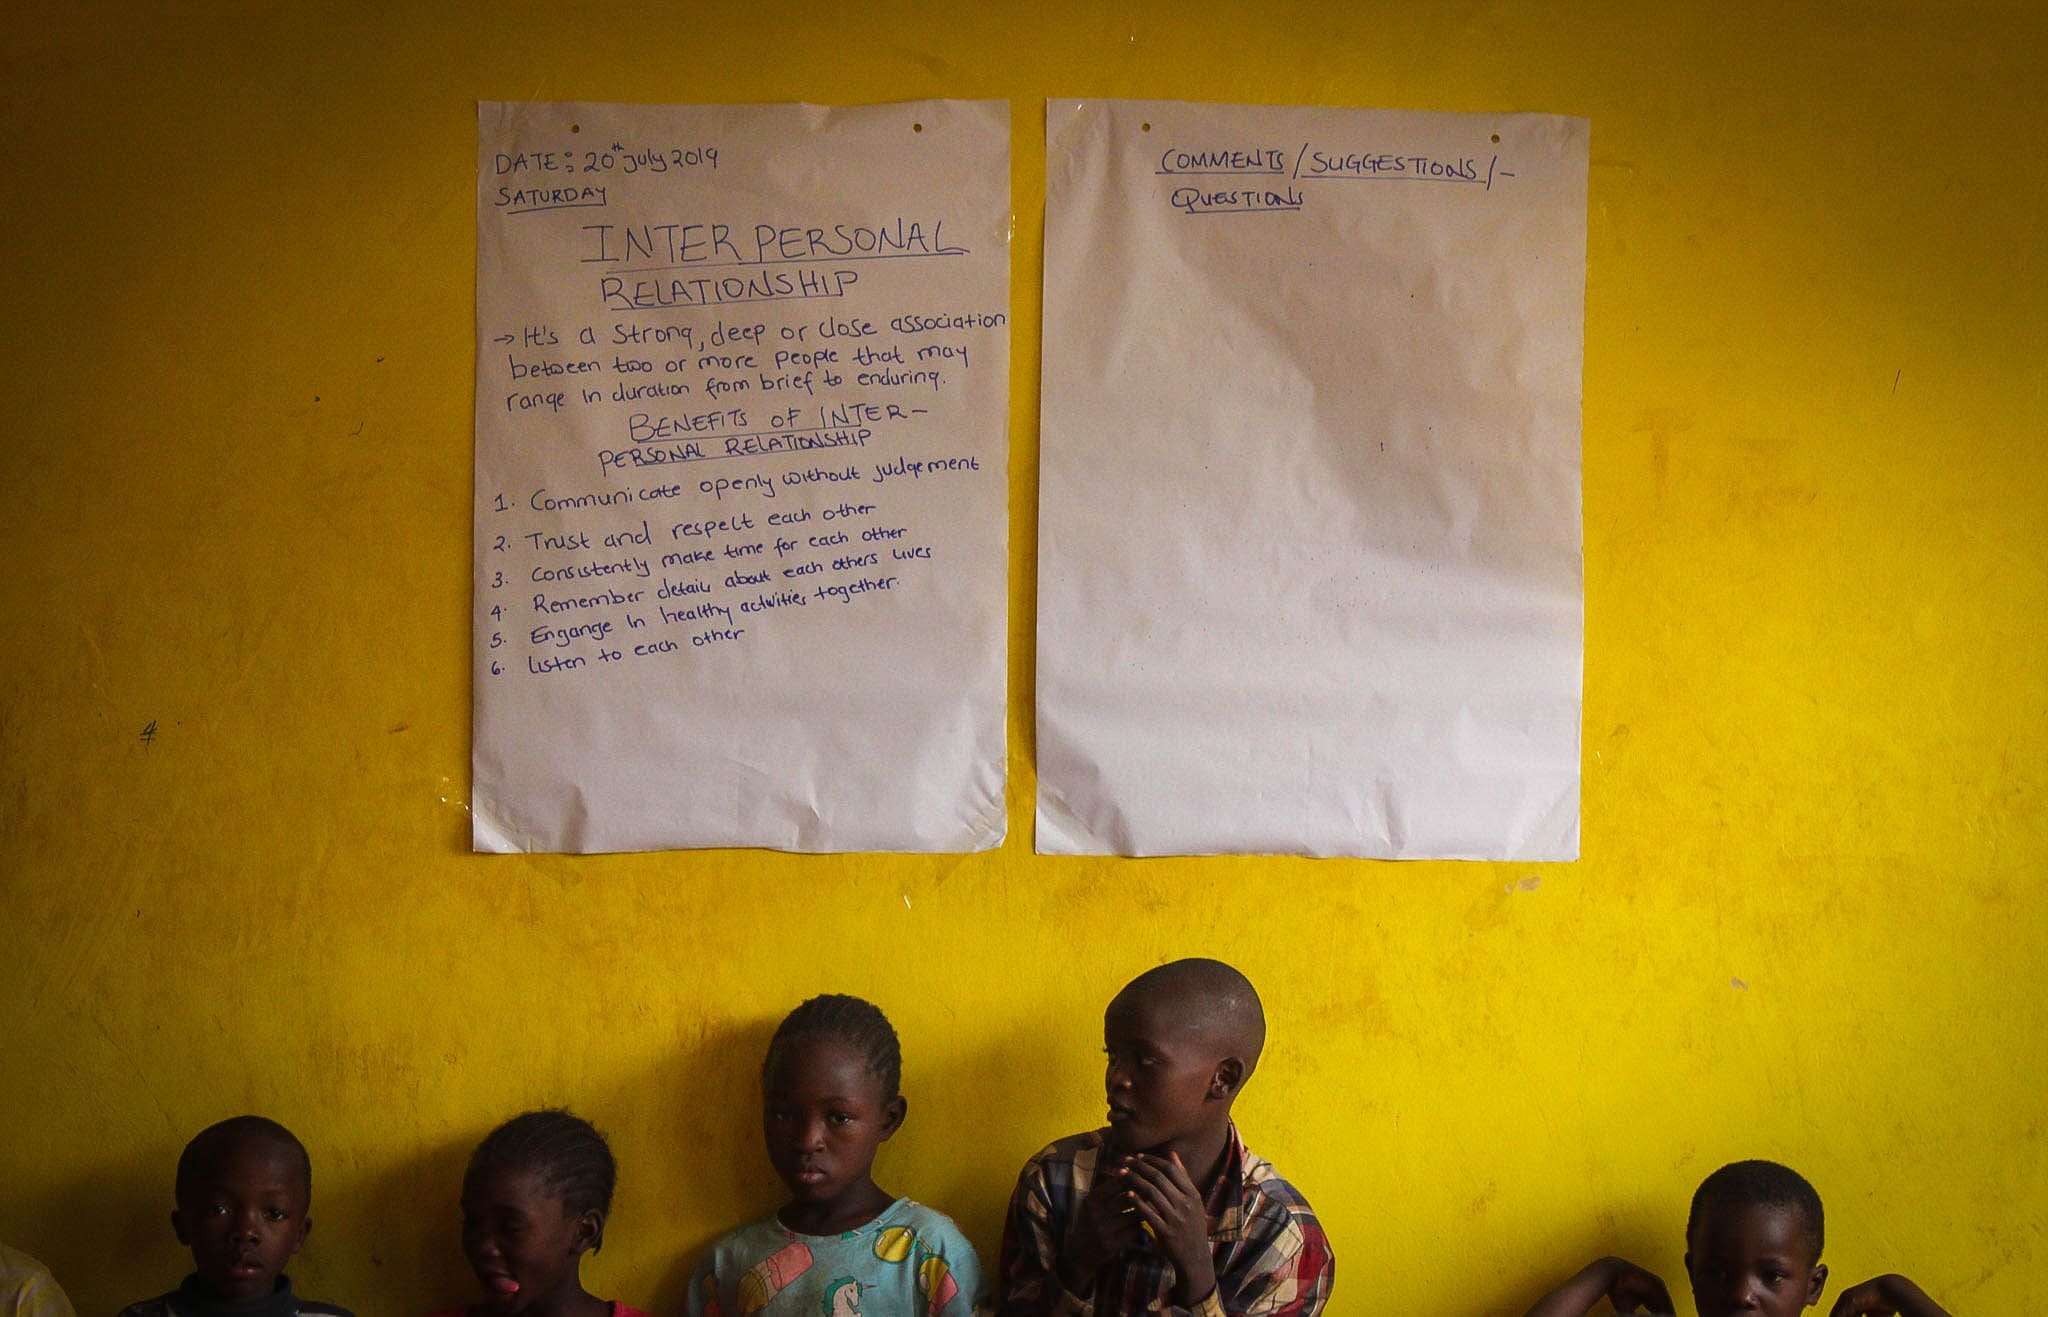 DATE: 20th July 2019
SATURDAY
INTER PERSONAL
RELATIONSHIP
→ It's a strong, deep or close association
between two or more people that may
range in duration from brief to enduring.
BENEFITS OF INTER-
PERSONAL RELATIONSHIP
1. Communicate openly without judgement
2. Trust and respect each other
3. Consistently make time for each other
4. Remember details about each others lives
5. Engange in healthy activities together.
6. Listen to each other
COMMENTS/SUGGESTIONS/-
QUESTIONS
4